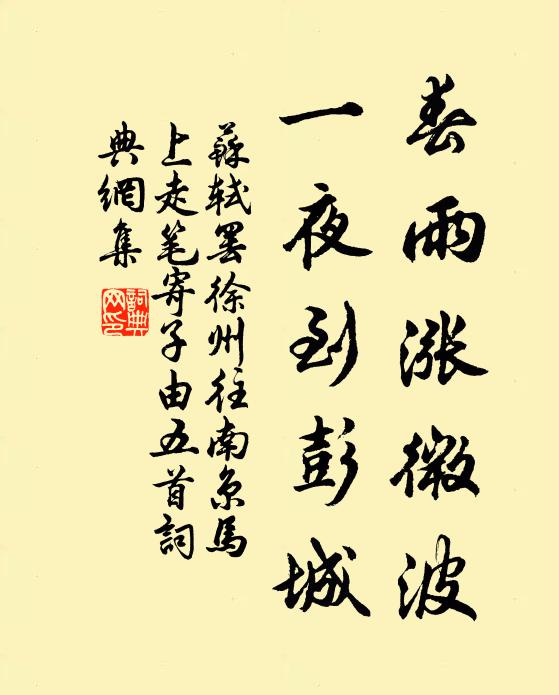 春雨漲微波
一夜到彭城
蘇軾罢徐州往南京馬
上走笔寄子由五首詞
典網集
詞典网印